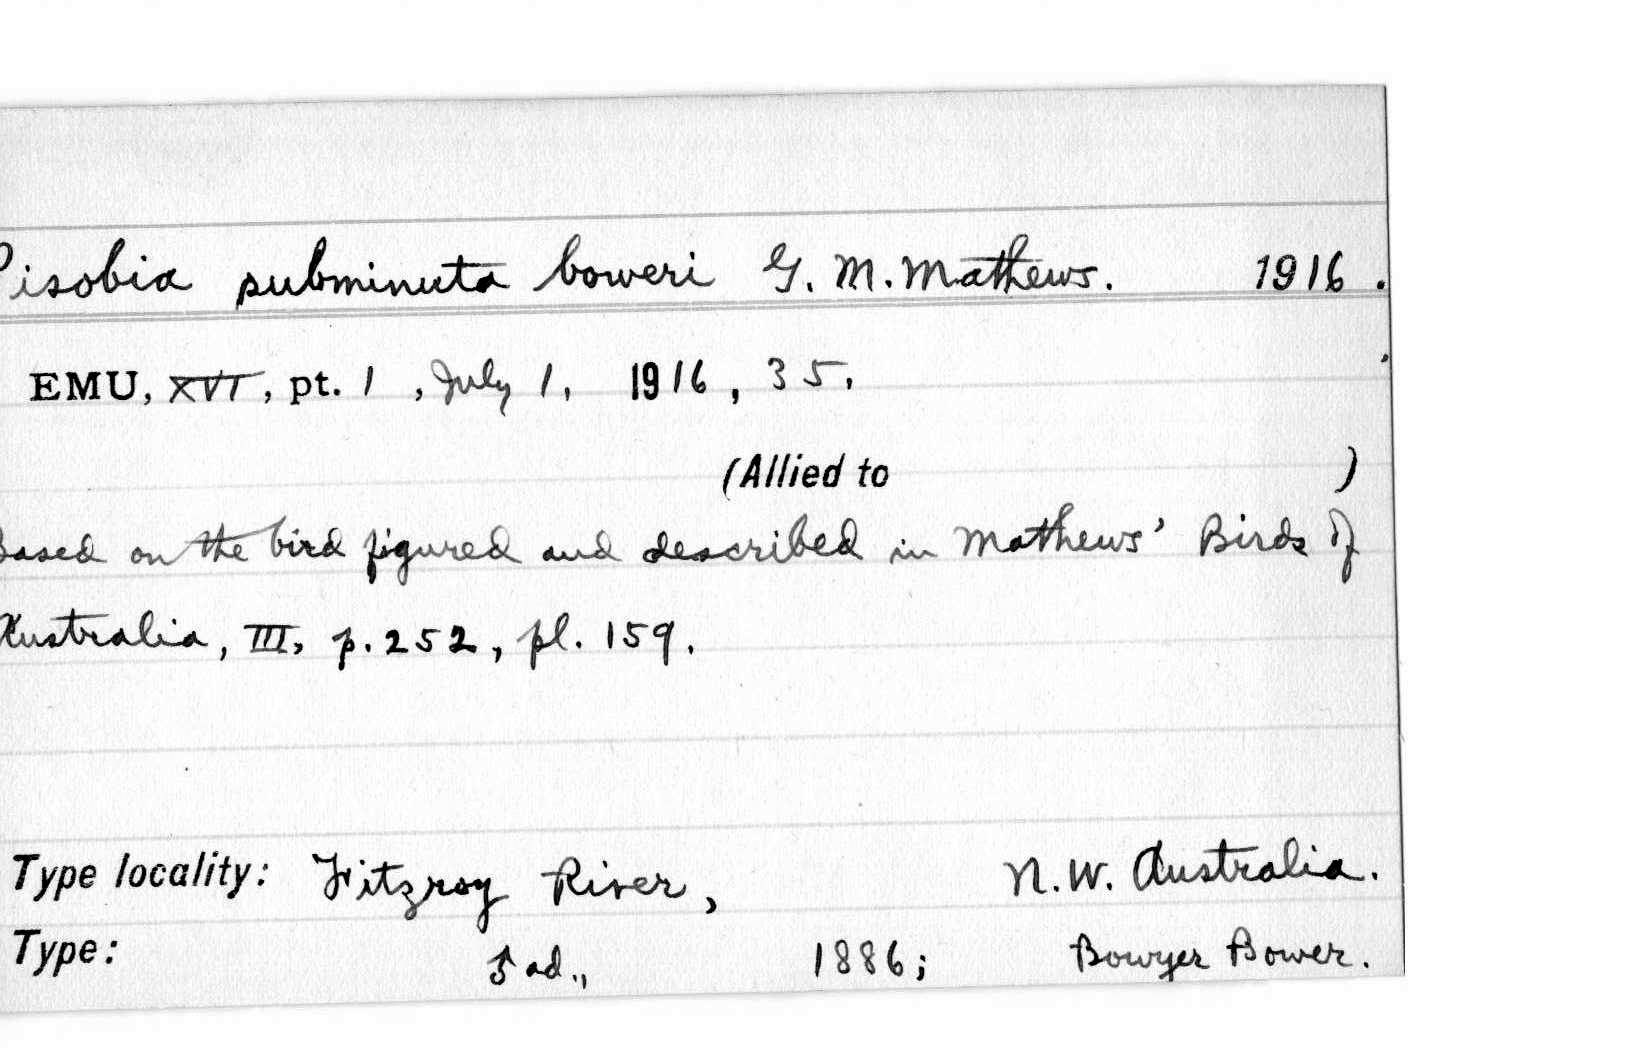 Pisobia subminuta boweri G. M. Mathews. 1916.
EMU, XVI, pt. 1, July 1, 1916, 35.
(Allied to )
Based on the bird figured and described in Mathews' Birds of
Australia, III, p. 252, pl. 159.
Type locality: Fitzroy River, N.W. Australia.
Type: ♂ ad., 1886; Bowyer Bower.